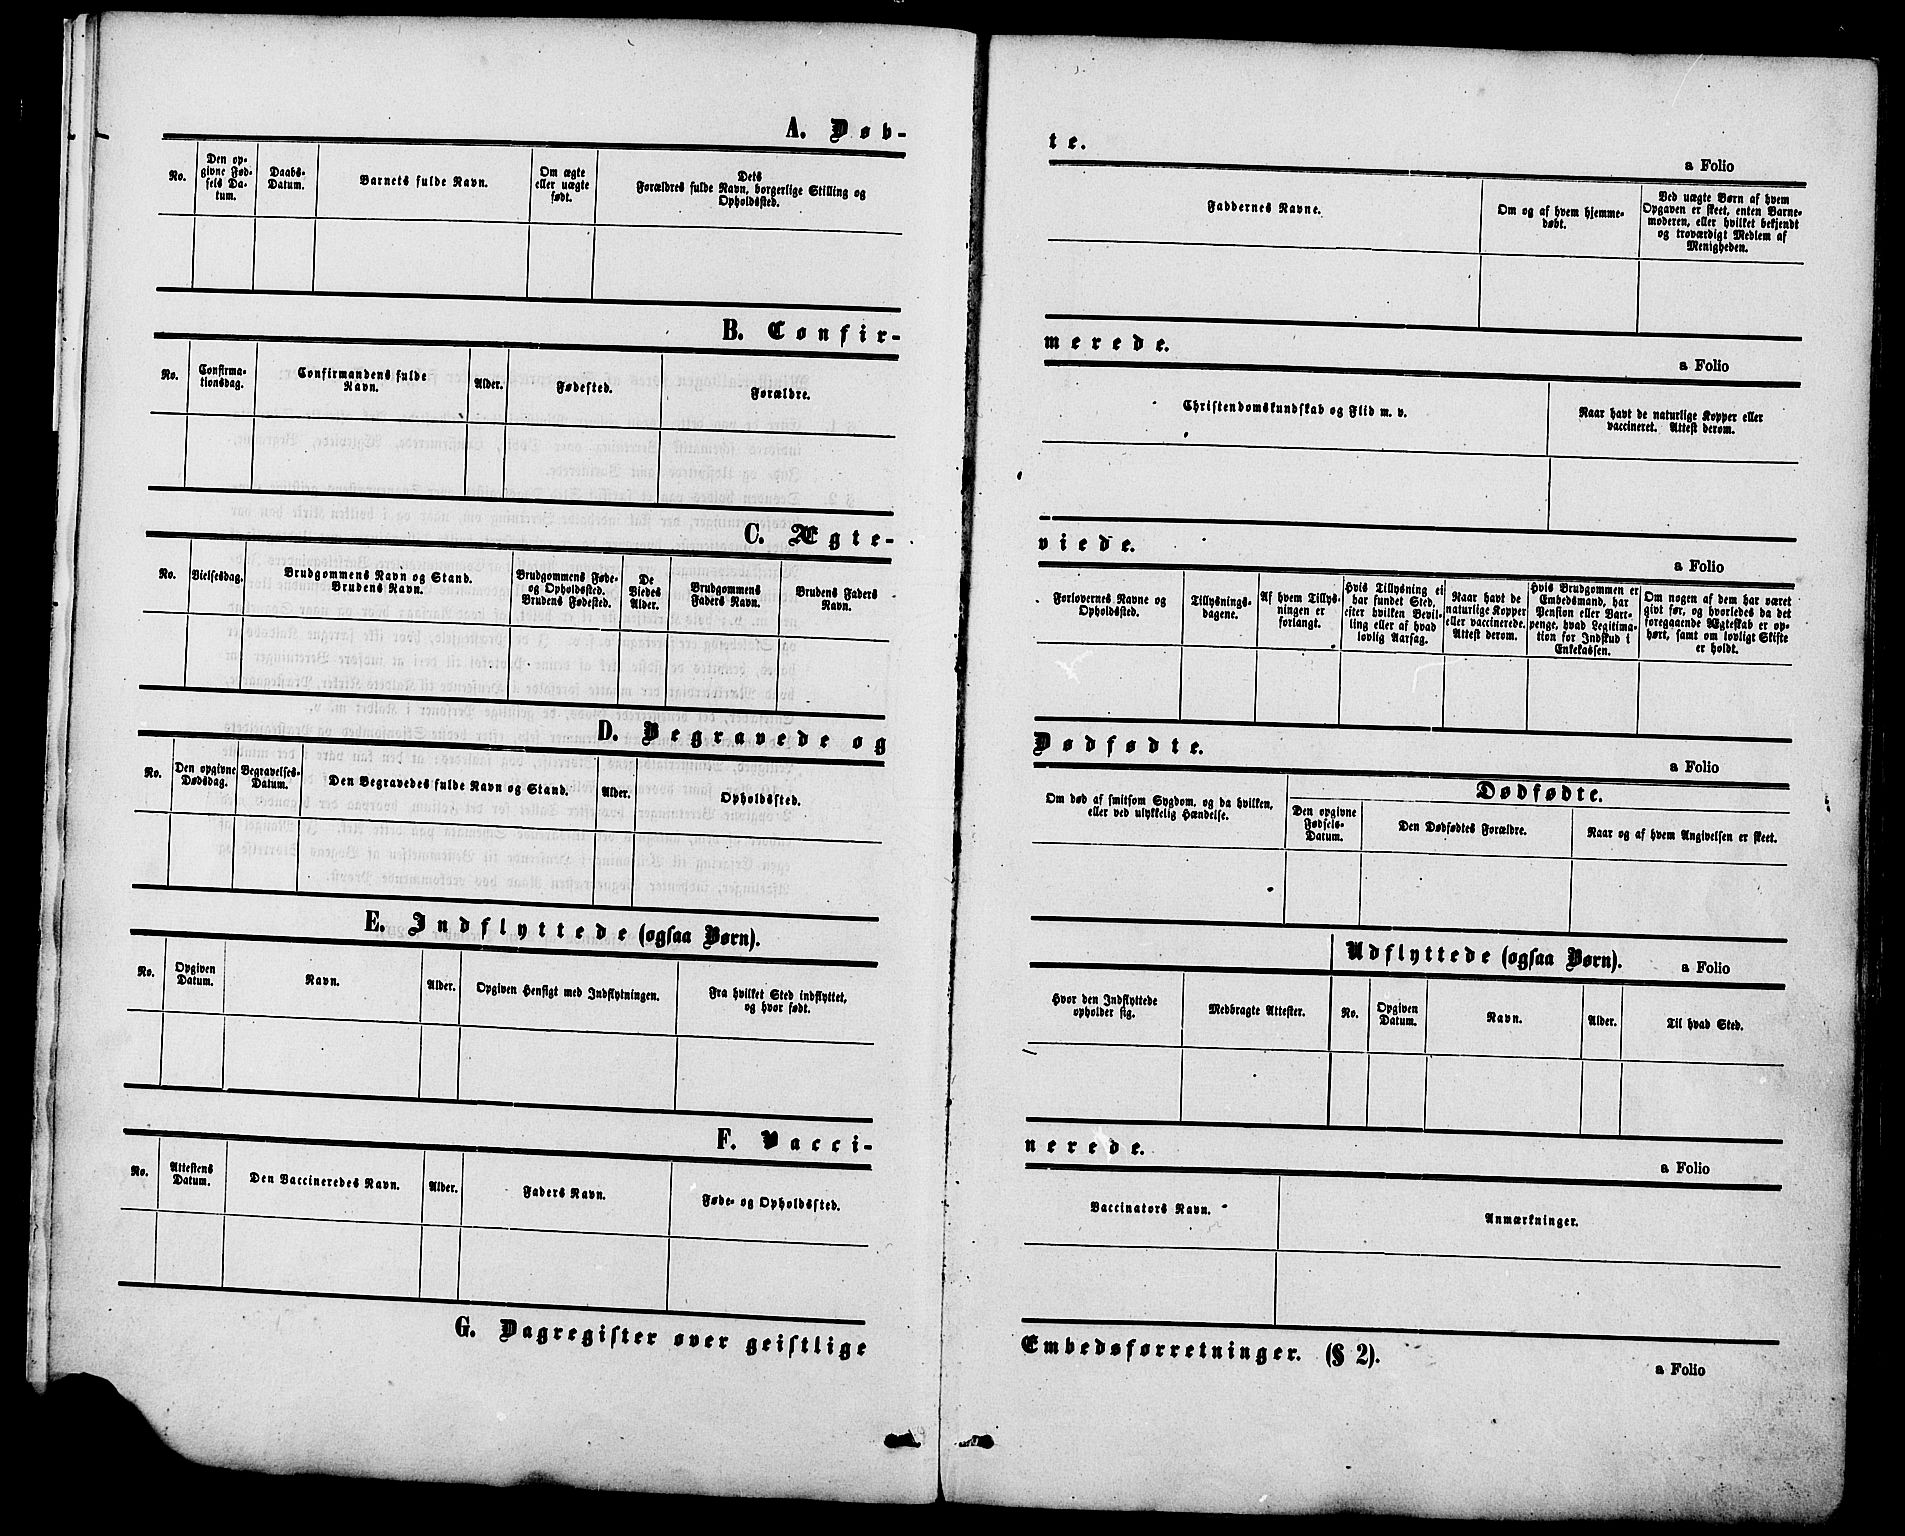 A. Døb-
No.
Den op-
givne Fød-
sels Da-
tum.
Daabs-
Datum.
Barnets fulde Navn.
Om ægte
eller uægte
født.
Dets
Forældres fulde Navn, borgerlige Stilling og
Opholdssted.
te.
a Folio
Faddernes Navne.
Om og af hvem hjemme-
døbt.
Ved uægte Børn af hvem
Opgaven er skeet, enten Barne-
moderen, eller hvilket bekjendt
og troværdigt Medlem af
Menigheden.
B. Confir-
No.
Confirma-
tionsdag.
Confirmandens fulde
Navn.
Alder.
Fødested.
Forældre.
merede.
a Folio
Christendomskundskab og Flid m. v.
Naar havt de naturlige Kopper eller
vaccineret. Attest derom.
C. Ægte-
No.
Vielsesdag.
Brudgommens Navn og Stand.
Brudens Navn.
Brudgommens Føde-
og Opholdssted.
Brudens Fødested.
De
Viedes
Alder.
Brudgommens
Faders Navn.
Brudens Faders
Navn.
viede.
a Folio
Forlovernes Navne og
Opholdssted.
Tillysnings-
dagene.
Af hvem Tillys-
ningen er
forlangt.
Hvis Tillysning ei
har fundet Sted,
efter hvilken Bevil-
ling eller af hvad
lovlig Aarsag.
Naar havt de
naturlige Kopper
eller vaccinerede.
Attest derom.
Hvis Brudgommen er
Embedsmand, har
Pension eller Vart-
penge, hvad Legitima-
tion for Indskud i
Enkekassen.
Om nogen af dem har været
givt før, og hvorledes da det
foregaaende Ægteskab er op-
hørt, samt om lovligt Skifte
er holdt.
D. Begravede og
No.
Den opgivne
Dødsdag.
Begravelses-
Datum.
Den Begravedes fulde Navn og Stand.
Alder.
Opholdssted.
Dødfødte.
a Folio
Om død af smitsom Sygdom, og da hvilken,
eller ved ulykkelig Hændelse.
Dødfødte.
Den opgivne
Fødsels-
Datum.
Den Dødfødtes Forældre.
Naar og af hvem Angivelsen er skeet.
E. Indflyttede (ogsaa Børn).
No.
Opgiven
Datum.
Navn.
Alder.
Opgiven Hensigt med Indflytningen.
Fra hvilket Sted indflyttet,
og hvor født.
Udflyttede (ogsaa Børn).
a Folio
Hvor den Indflyttede
opholder sig.
Medbragte Attester.
No.
Opgiven
Datum.
Navn.
Alder.
Til hvad Sted.
F. Vacci-
No.
Attestens
Datum.
Den Vaccineredes Navn.
Alder.
Faders Navn.
Føde- og Opholdssted.
nerede.
a Folio
Vaccinators Navn.
Anmærkninger.
G. Dagregister over geistlige
Embedsforretninger. (§ 2).
a Folio